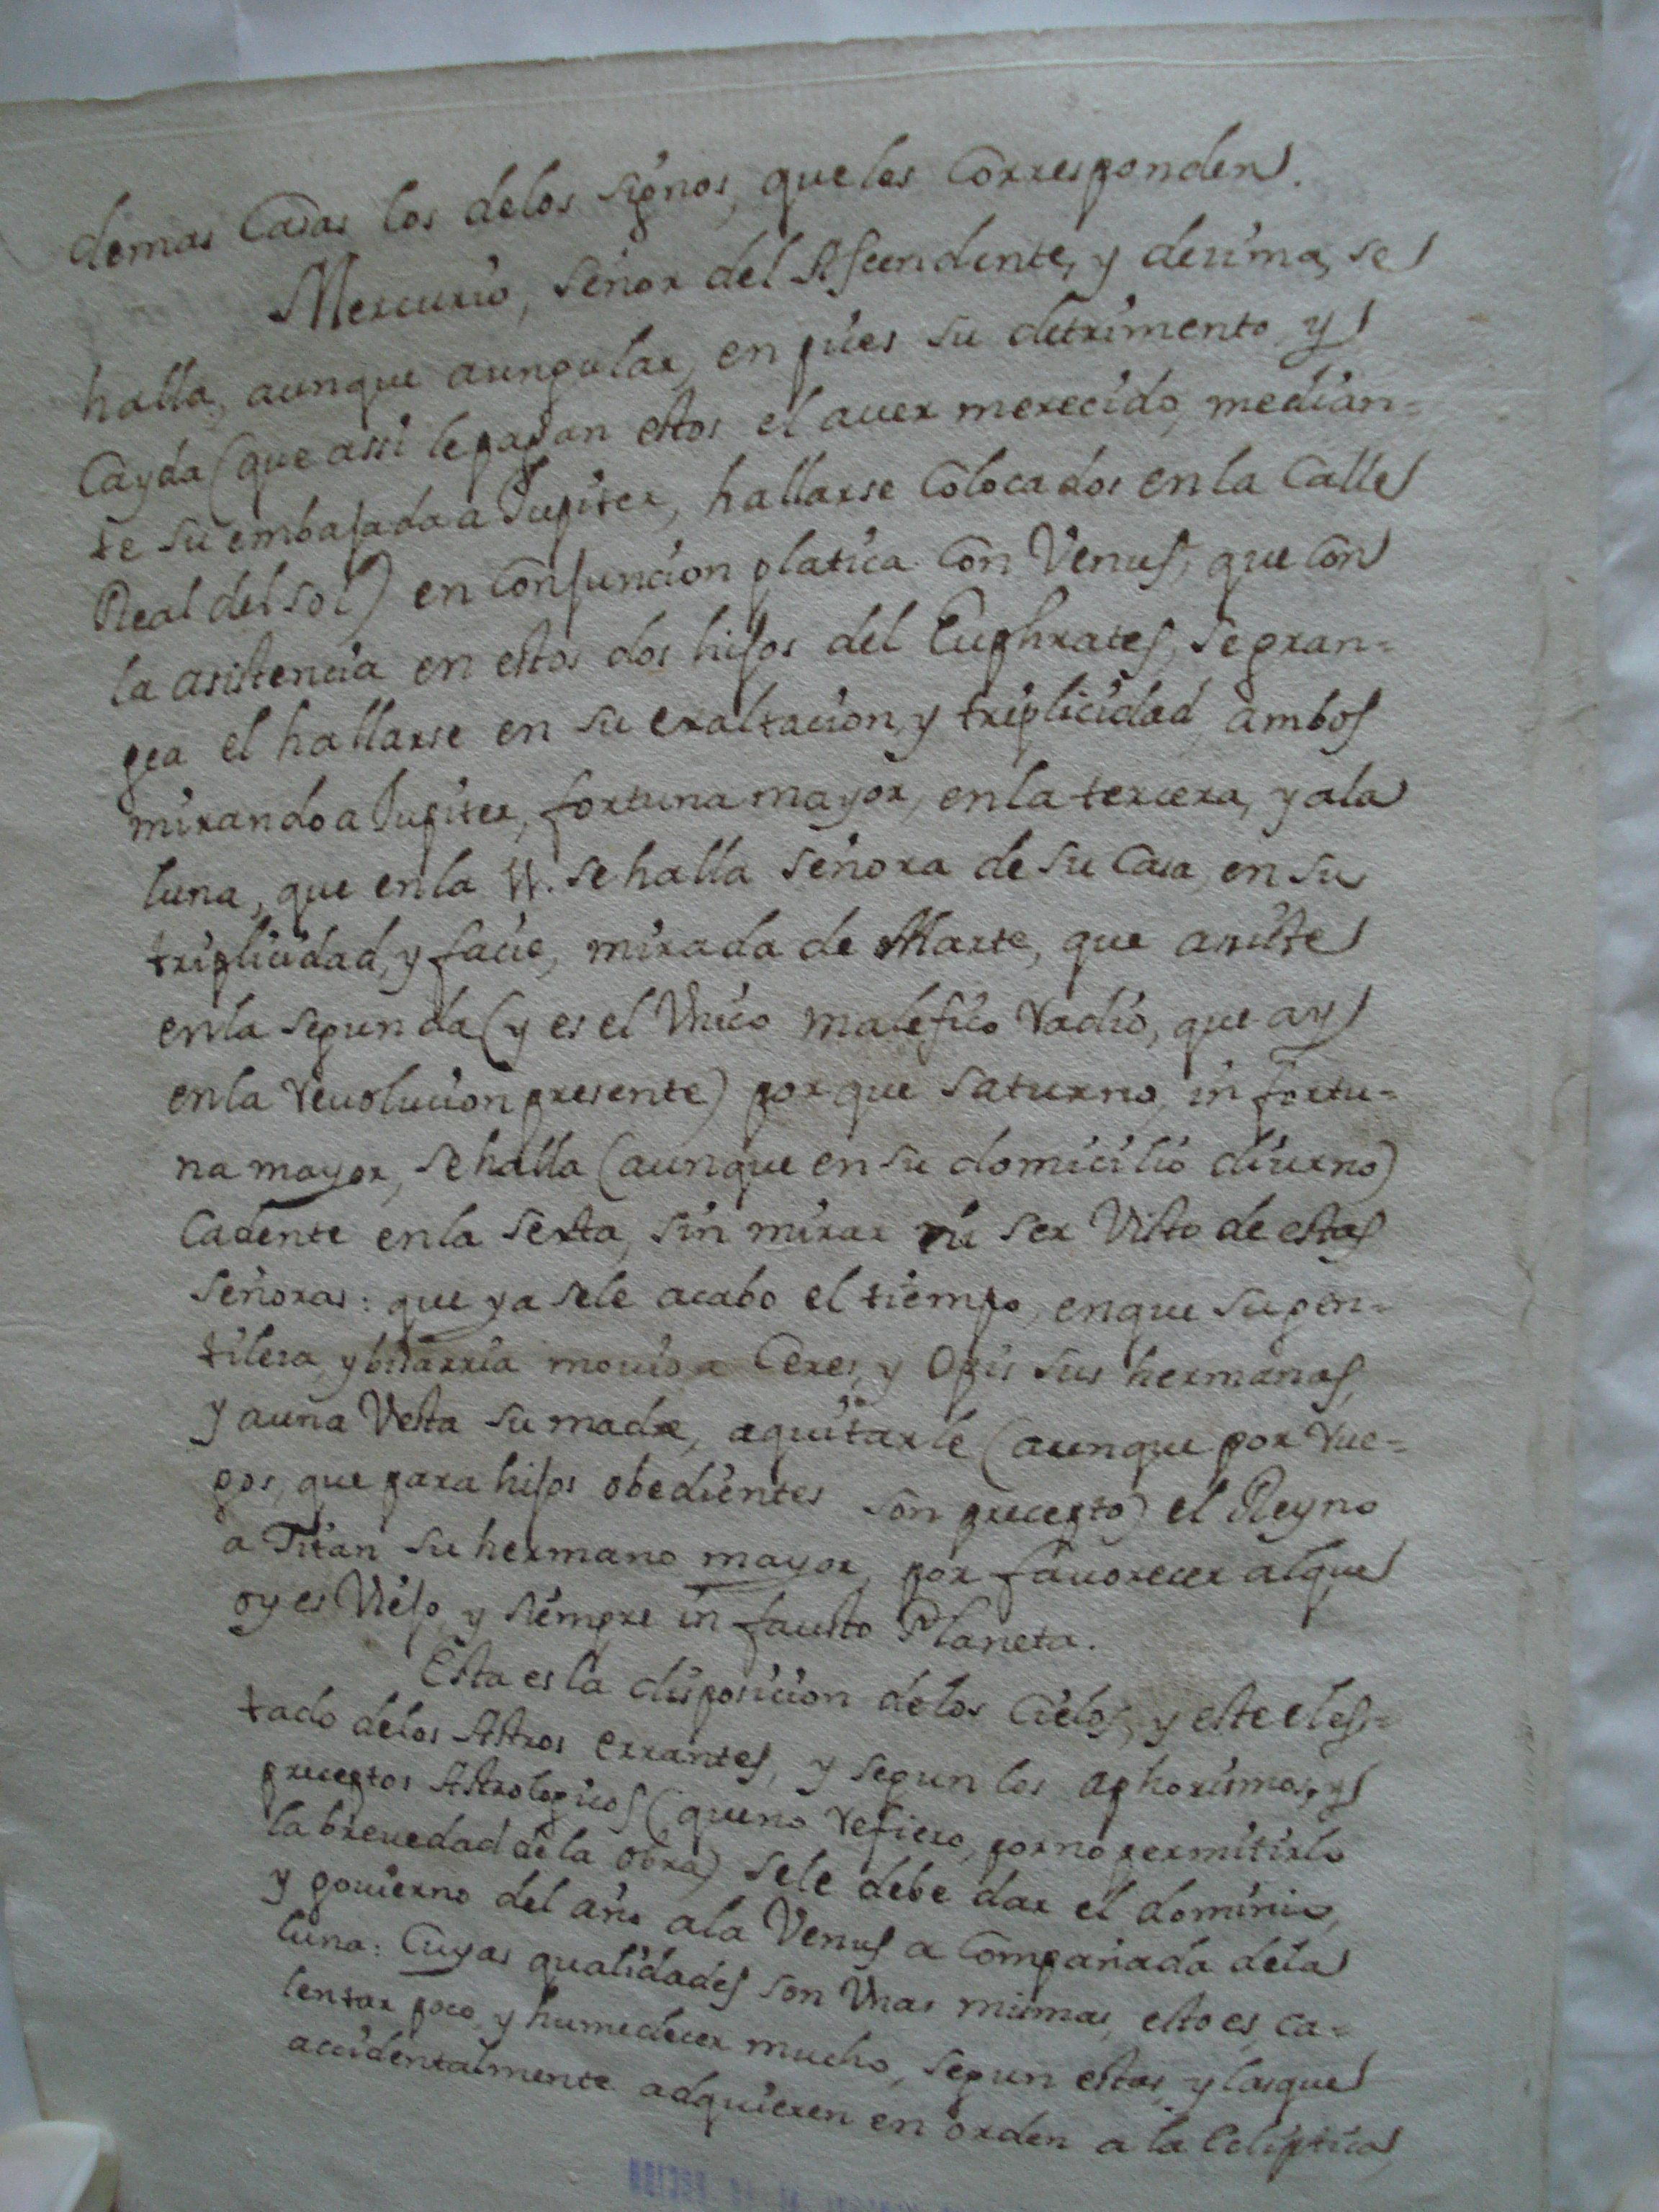 demas Casas los delos signos, queles Corresponden.
Mercurio, señor del Ascendente, y decima, se
halla, aunque aungular, en pices su detrimento, y
Cayda (que assi lepagan estos el auer merecido, median=
te su embajada a Jupiter, hallarse Colocados en la Calle
Real del sol) en Conjuncion platica Con Venus, que Con
la asistencia en estos dos hijos del Euphrates, se gran=
gea el hallarse en su exaltacion, y triplicidad, ambos
mirando a Jupiter, fortuna mayor, en la tercera, y ala
luna, que en la 11. se halla señora de su Casa, en su
triplicidad, y facie, mirada de Marte, que asiste
en la segunda (y es el Unico malefico radio, que ay
en la reuolucion presente) porque saturno, infortu=
na mayor, se halla (aunque en su domicilio diurno)
Cadente en la sexta, sin mirar ni ser Visto de estas
señoras: que ya sele acabo el tiempo, en que su gen=
tileza, y bizarria mouio a Ceres, y Opis sus hermanas,
y aun a Vesta su madre, a quitarle (aunque por rue=
gos, que para hijos obedientes son precepto) el Reyno
a Titan su hermano mayor, por fauorecer alque
oy es Viejo, y siempre infausto Planeta.
Esta es la disposicion delos Cielos, y este el es=
tado delos Astros errantes, y segun los aphorismos, y
preceptos Astrologicos (que no refiero, por no permitirlo
la breuedad de la obra) sele debe dar el dominio,
y gouierno del año ala Venus a Compañada dela
luna: Cuyas qualidades son Unas mismas, esto es, ca=
lentar poco, y humedecer mucho, segun estas, y las que
accidentalmente adquieren en orden a la Ecliptica